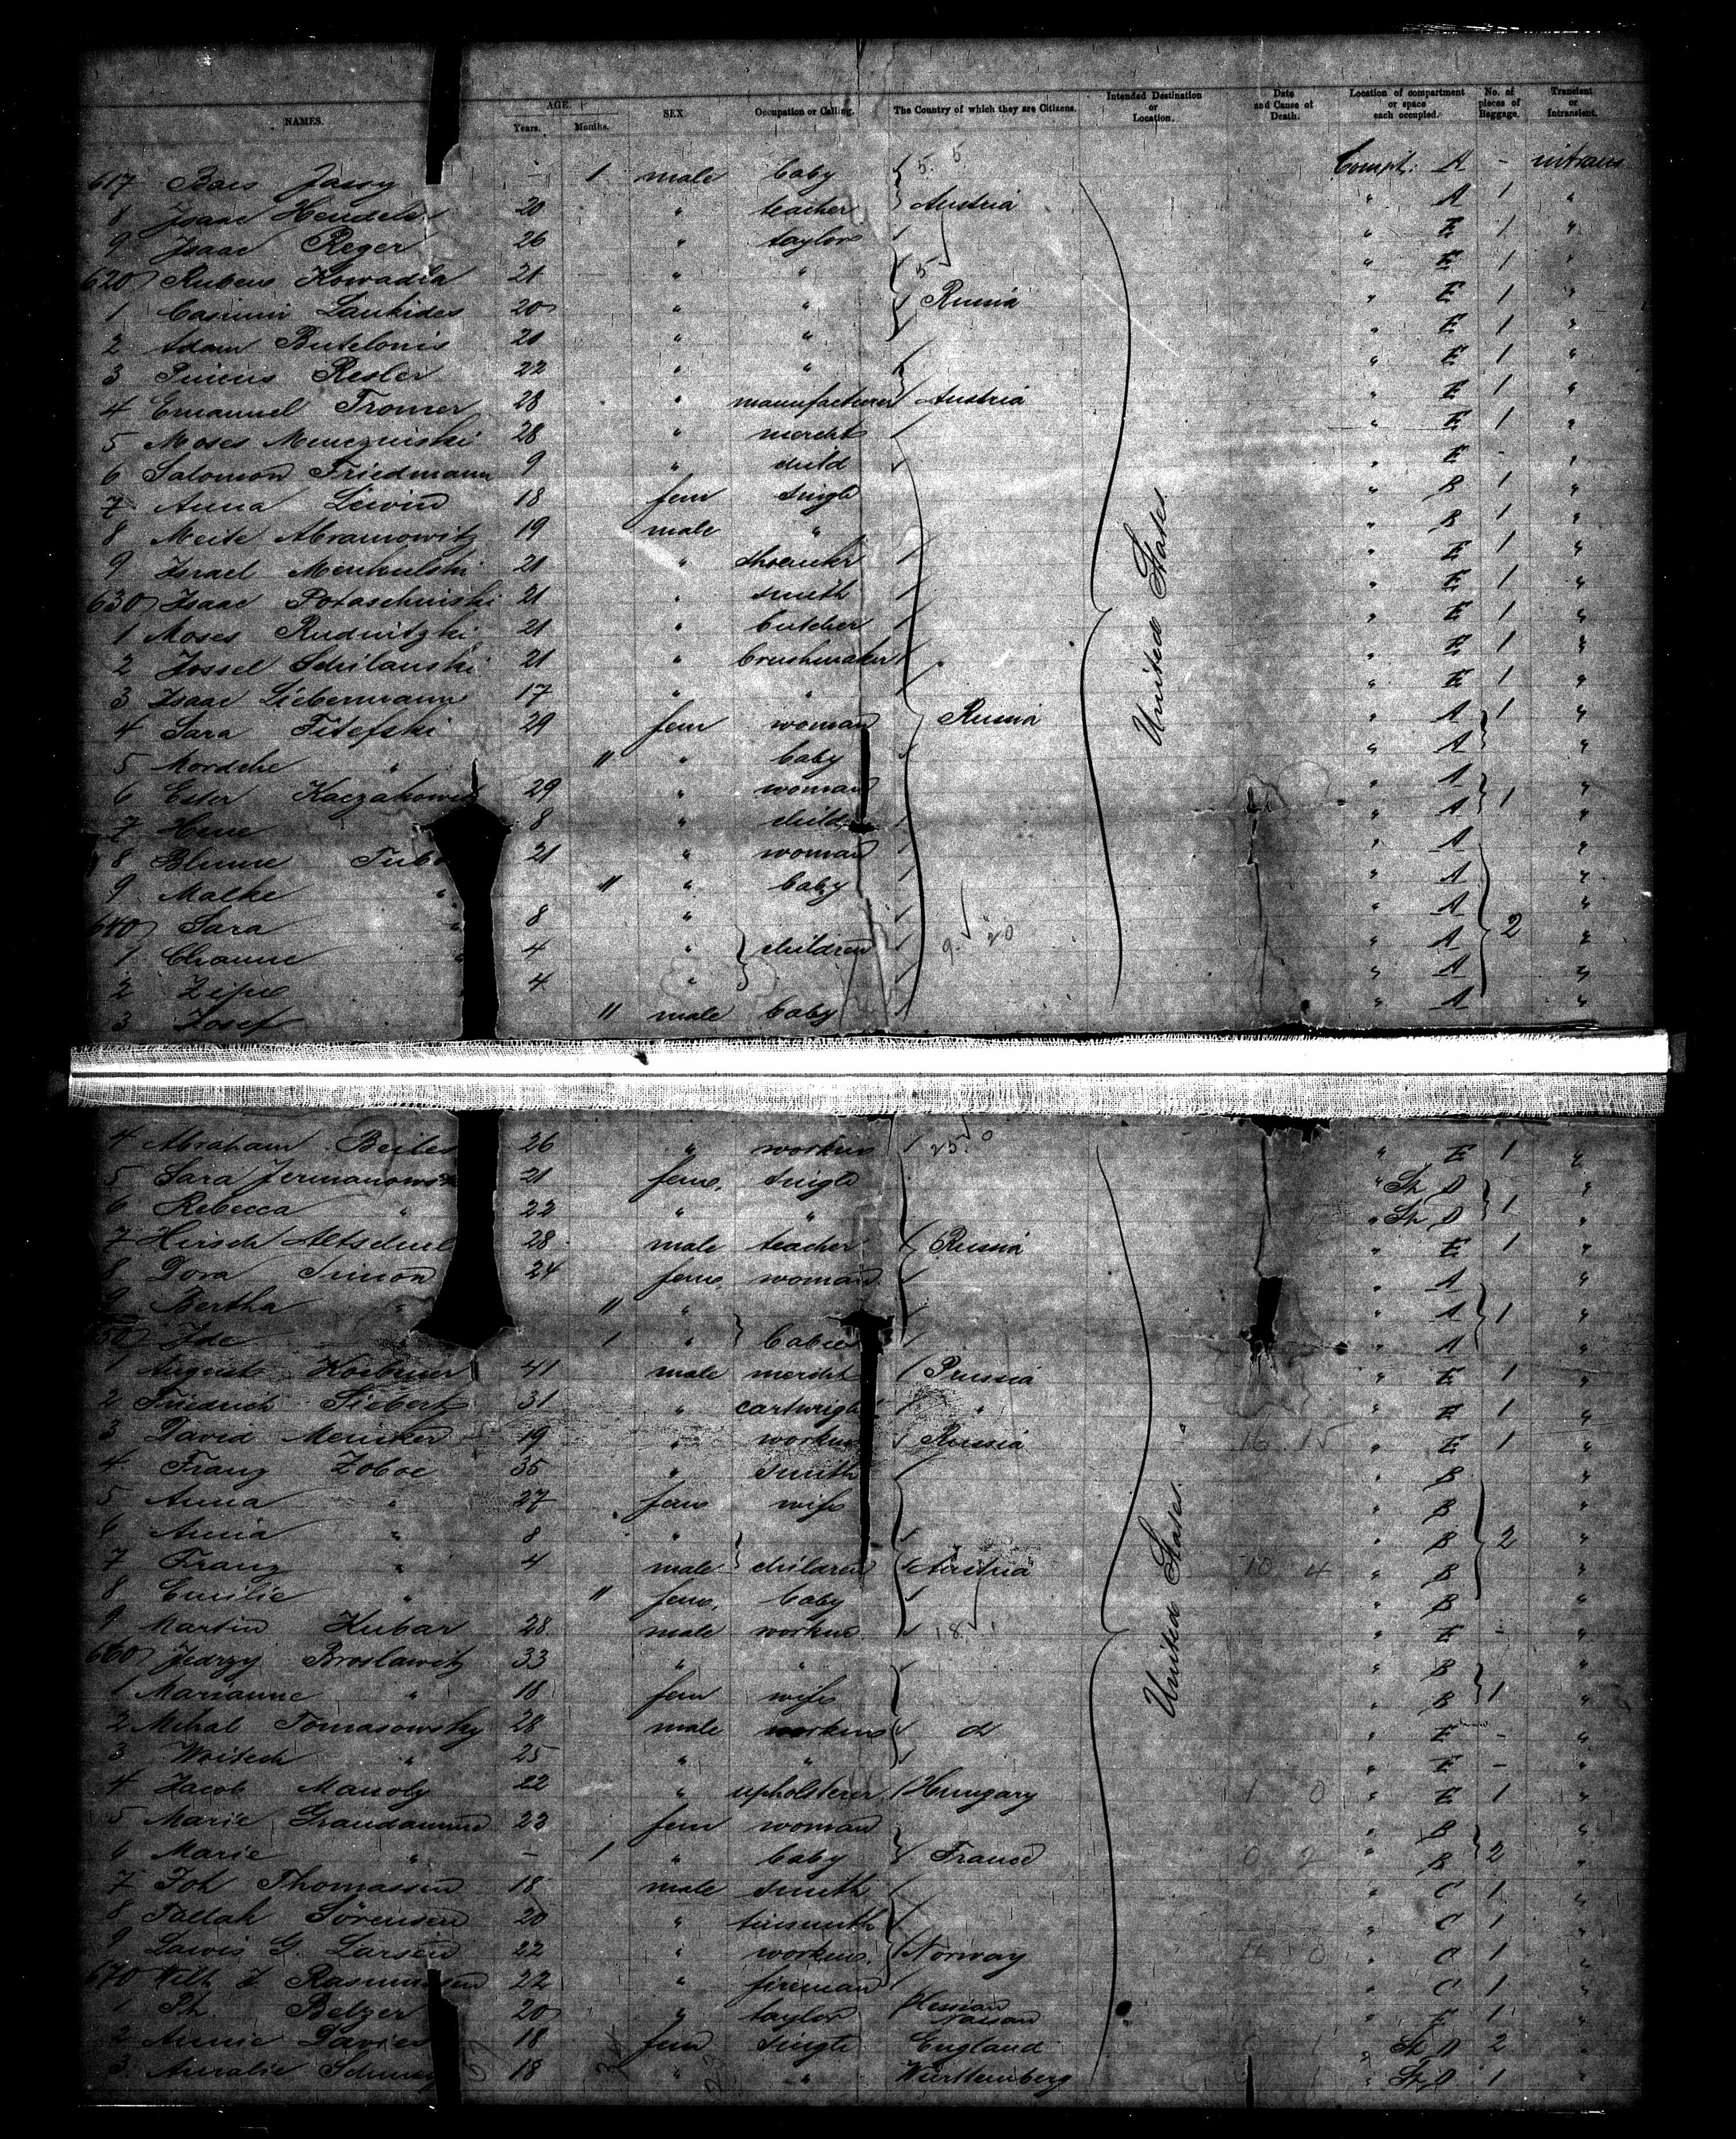 NAMES. AGE. Years. Months. SEX. Occupation or Calling. The Country of which they are Citizens. Intended Destination or Location. Date and Cause of Death. Location of compartment or space each occupied. No. of pieces of Baggage. Transient or Intransient.
617 Jassy - 1 male baby Compt. A - intrans
8 Isaac Hendeler 20 " teacher Austria " A 1 "
9 Isaac Reger 26 " taylor " E 1 "
620 Ruben Kowadla 21 " " " E 1 "
1 Casimir 20 " " Russia " E 1 "
2 Adam Butelonis 21 " " " E 1 "
3 Pincus Resler 22 " " " E 1 "
4 Emanuel Tromer 28 " manufacturer Austria " E 1 "
5 Moses 28 " mercht " E 1 "
6 Salomon Friedmann 9 " child " E - "
7 Anna Lewin 18 fem single " B 1 "
8 Meite Abramowitz 19 male " " B 1 "
9 Israel Menkulski 21 " " E 1 "
630 Isaac Potaschinski 21 " smith " E 1 "
1 Moses Rudnitzki 21 " butcher " E 1 "
2 Jossel Schilanski 21 " brushmaker " E 1 "
3 Isaac Liebermann 17 " " " E 1 "
4 Sara Titefski 29 fem woman Russia " A 1 "
5 Mordche " 11 " baby " A "
6 Ester 29 " woman " A 1 "
7 Hene 8 " child " A "
8 Blume 21 " woman " A "
9 Malke " 11 " baby " A "
640 Sara " 8 " " A 2 "
1 Channe " 4 " children " A "
2 Zipe 4 " " A "
3 Josef 11 male baby " A "
United States
4 Abraham Beiler 26 " worker " E 1 "
5 Sara 21 fem. single " St. D "
6 Rebecca " 22 " " " St. D 1 "
7 Hirsch Altschul 28 male teacher Russia " E 1 "
8 Dora Simon 24 fem. woman " A "
9 Bertha " 11 " " A 1 "
650 Ide 1 " babies " A "
1 August 41 male mercht Prussia " E 1 "
2 Friedrich Siebert 31 " cartwright " " E 1 "
3 David Meniker 19 " worker Russia " E 1 "
4 Franz Zoboe 35 " smith " B "
5 Anna " 27 fem wife " B "
6 Anna " 8 " " B 2 "
7 Franz " 4 male children Austria " B "
8 Emilie " 11 fem. baby " B "
9 Martin Kubar 28 male worker " E - "
660 Jedrzy Broslawitz 33 " " " B "
1 Marianne " 18 fem wife " B 1 "
2 Mihal Tomasowsky 28 male workers do " E - "
3 Woitech " 25 " " " E - "
4 Jacob Manoly 22 " upholsterer Hungary " E 1 "
5 Marie 23 fem woman " B "
6 Marie " - 1 " baby France " B 2 "
7 Joh Thomassen 18 male smith " C 1 "
8 Tallak Sörensen 20 " tinsmith " C 1 "
9 Lawis G. Larsen 22 " worker Norway " C 1 "
670 Wilh J Rasmussen 22 " fireman " C 1 "
1 Ph. Belzer 20 " taylor Hessian Nassau " E 1 "
2 Annie Davies 18 fem single England " St. D 2 "
3 Amalie 18 " " Württemberg " St. D 1 "
United States.